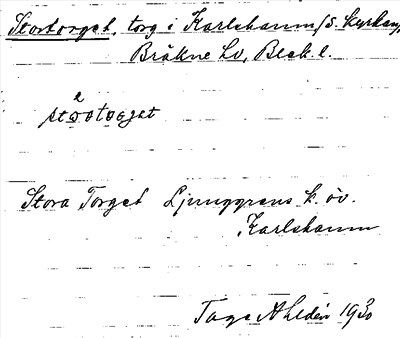 Stortorget, torg i Karlshamn /s. kyrkan,
Bräkne hd, Blek. l.
2
Stora Torget Ljunggrens k. öv.
Karlshamn
Tage Ahldén 1930